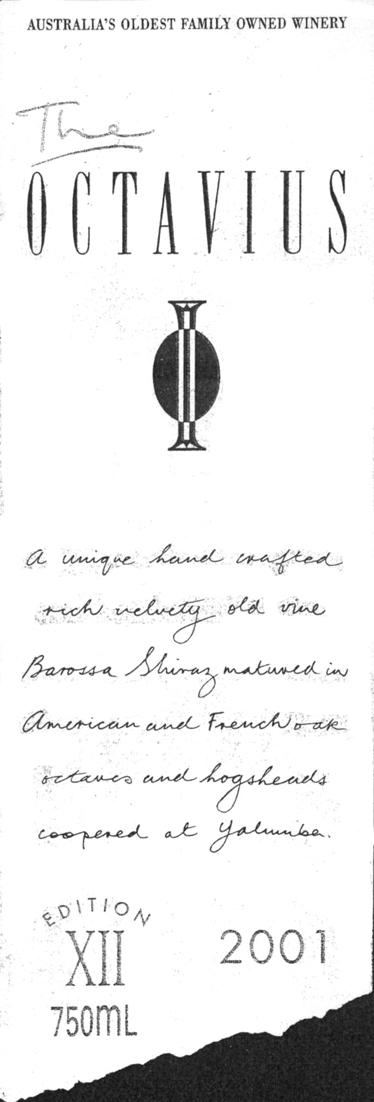 AUSTRALIA'S OLDEST FAMILY OWNED WINERY
The
OCTAVIUS
A unique hand crafted
rich velvety old vine
Barossa Shiraz matured in
American and French oak
octaves and hogsheads
coopered at Yalumba.
EDITION
XII
2001
750mL